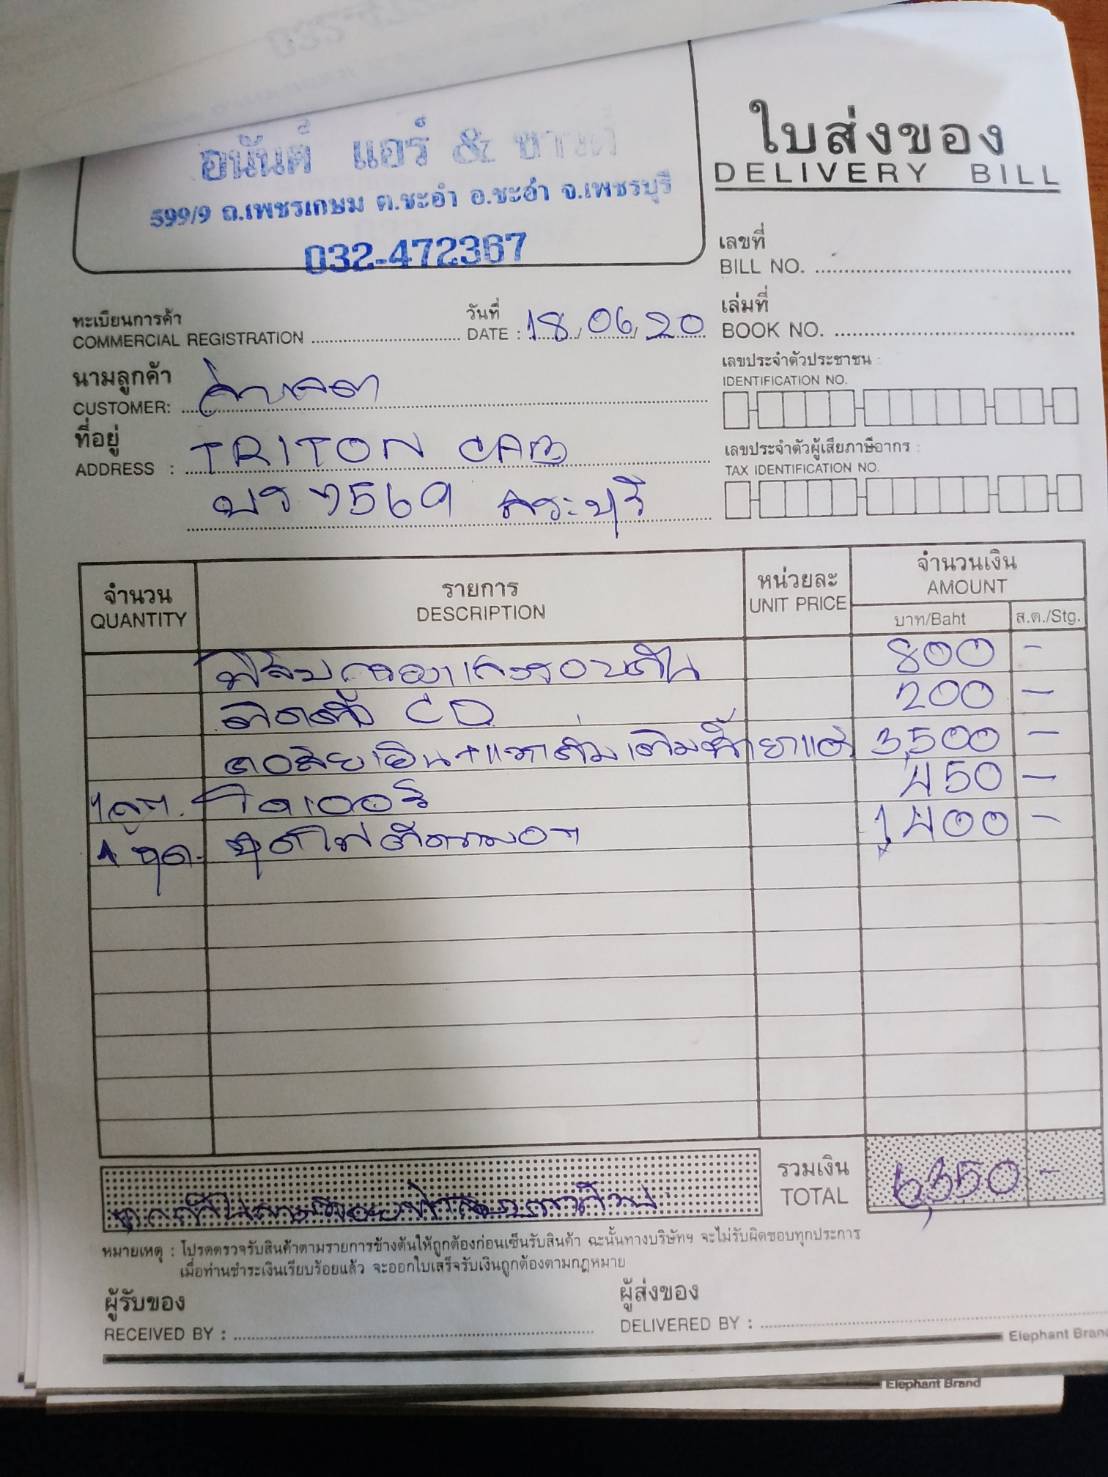 อนันต์ แอร์ & ซาวด์
599/9 ถ.เพชรเกษม ต.ชะอำ อ.ชะอำ จ.เพชรบุรี
032-472367
ใบส่งของ
DELIVERY BILL
เลขที่
BILL NO.
เล่มที่
BOOK NO.
ทะเบียนการค้า
COMMERCIAL REGISTRATION
วันที่
DATE : 18/06/20
นามลูกค้า
CUSTOMER:
ที่อยู่
ADDRESS : TRITON CAB
บร 7569 สระบุรี
เลขประจำตัวประชาชน :
IDENTIFICATION NO.
เลขประจำตัวผู้เสียภาษีอากร :
TAX IDENTIFICATION NO.
จำนวน
QUANTITY
รายการ
DESCRIPTION
หน่วยละ
UNIT PRICE
จำนวนเงิน
AMOUNT
บาท/Baht
ส.ต./Stg.
ฟิล์มกรองแสงรอบคัน 800 -
ติดตั้ง CD 200 -
คอล์ยเย็น+แวคคั่มเติมน้ำยาแอร์ 3,500 -
1 ลูก. 450 -
1 ชุด. 1,400 -
รวมเงิน
TOTAL
6,350 -
หมายเหตุ : โปรดตรวจรับสินค้าตามรายการข้างต้นให้ถูกต้องก่อนเซ็นรับสินค้า ฉะนั้นทางบริษัทฯ จะไม่รับผิดชอบทุกประการ
เมื่อท่านชำระเงินเรียบร้อยแล้ว จะออกใบเสร็จรับเงินถูกต้องตามกฎหมาย
ผู้รับของ
RECEIVED BY :
ผู้ส่งของ
DELIVERED BY :
Elephant Brand
Elephant Brand